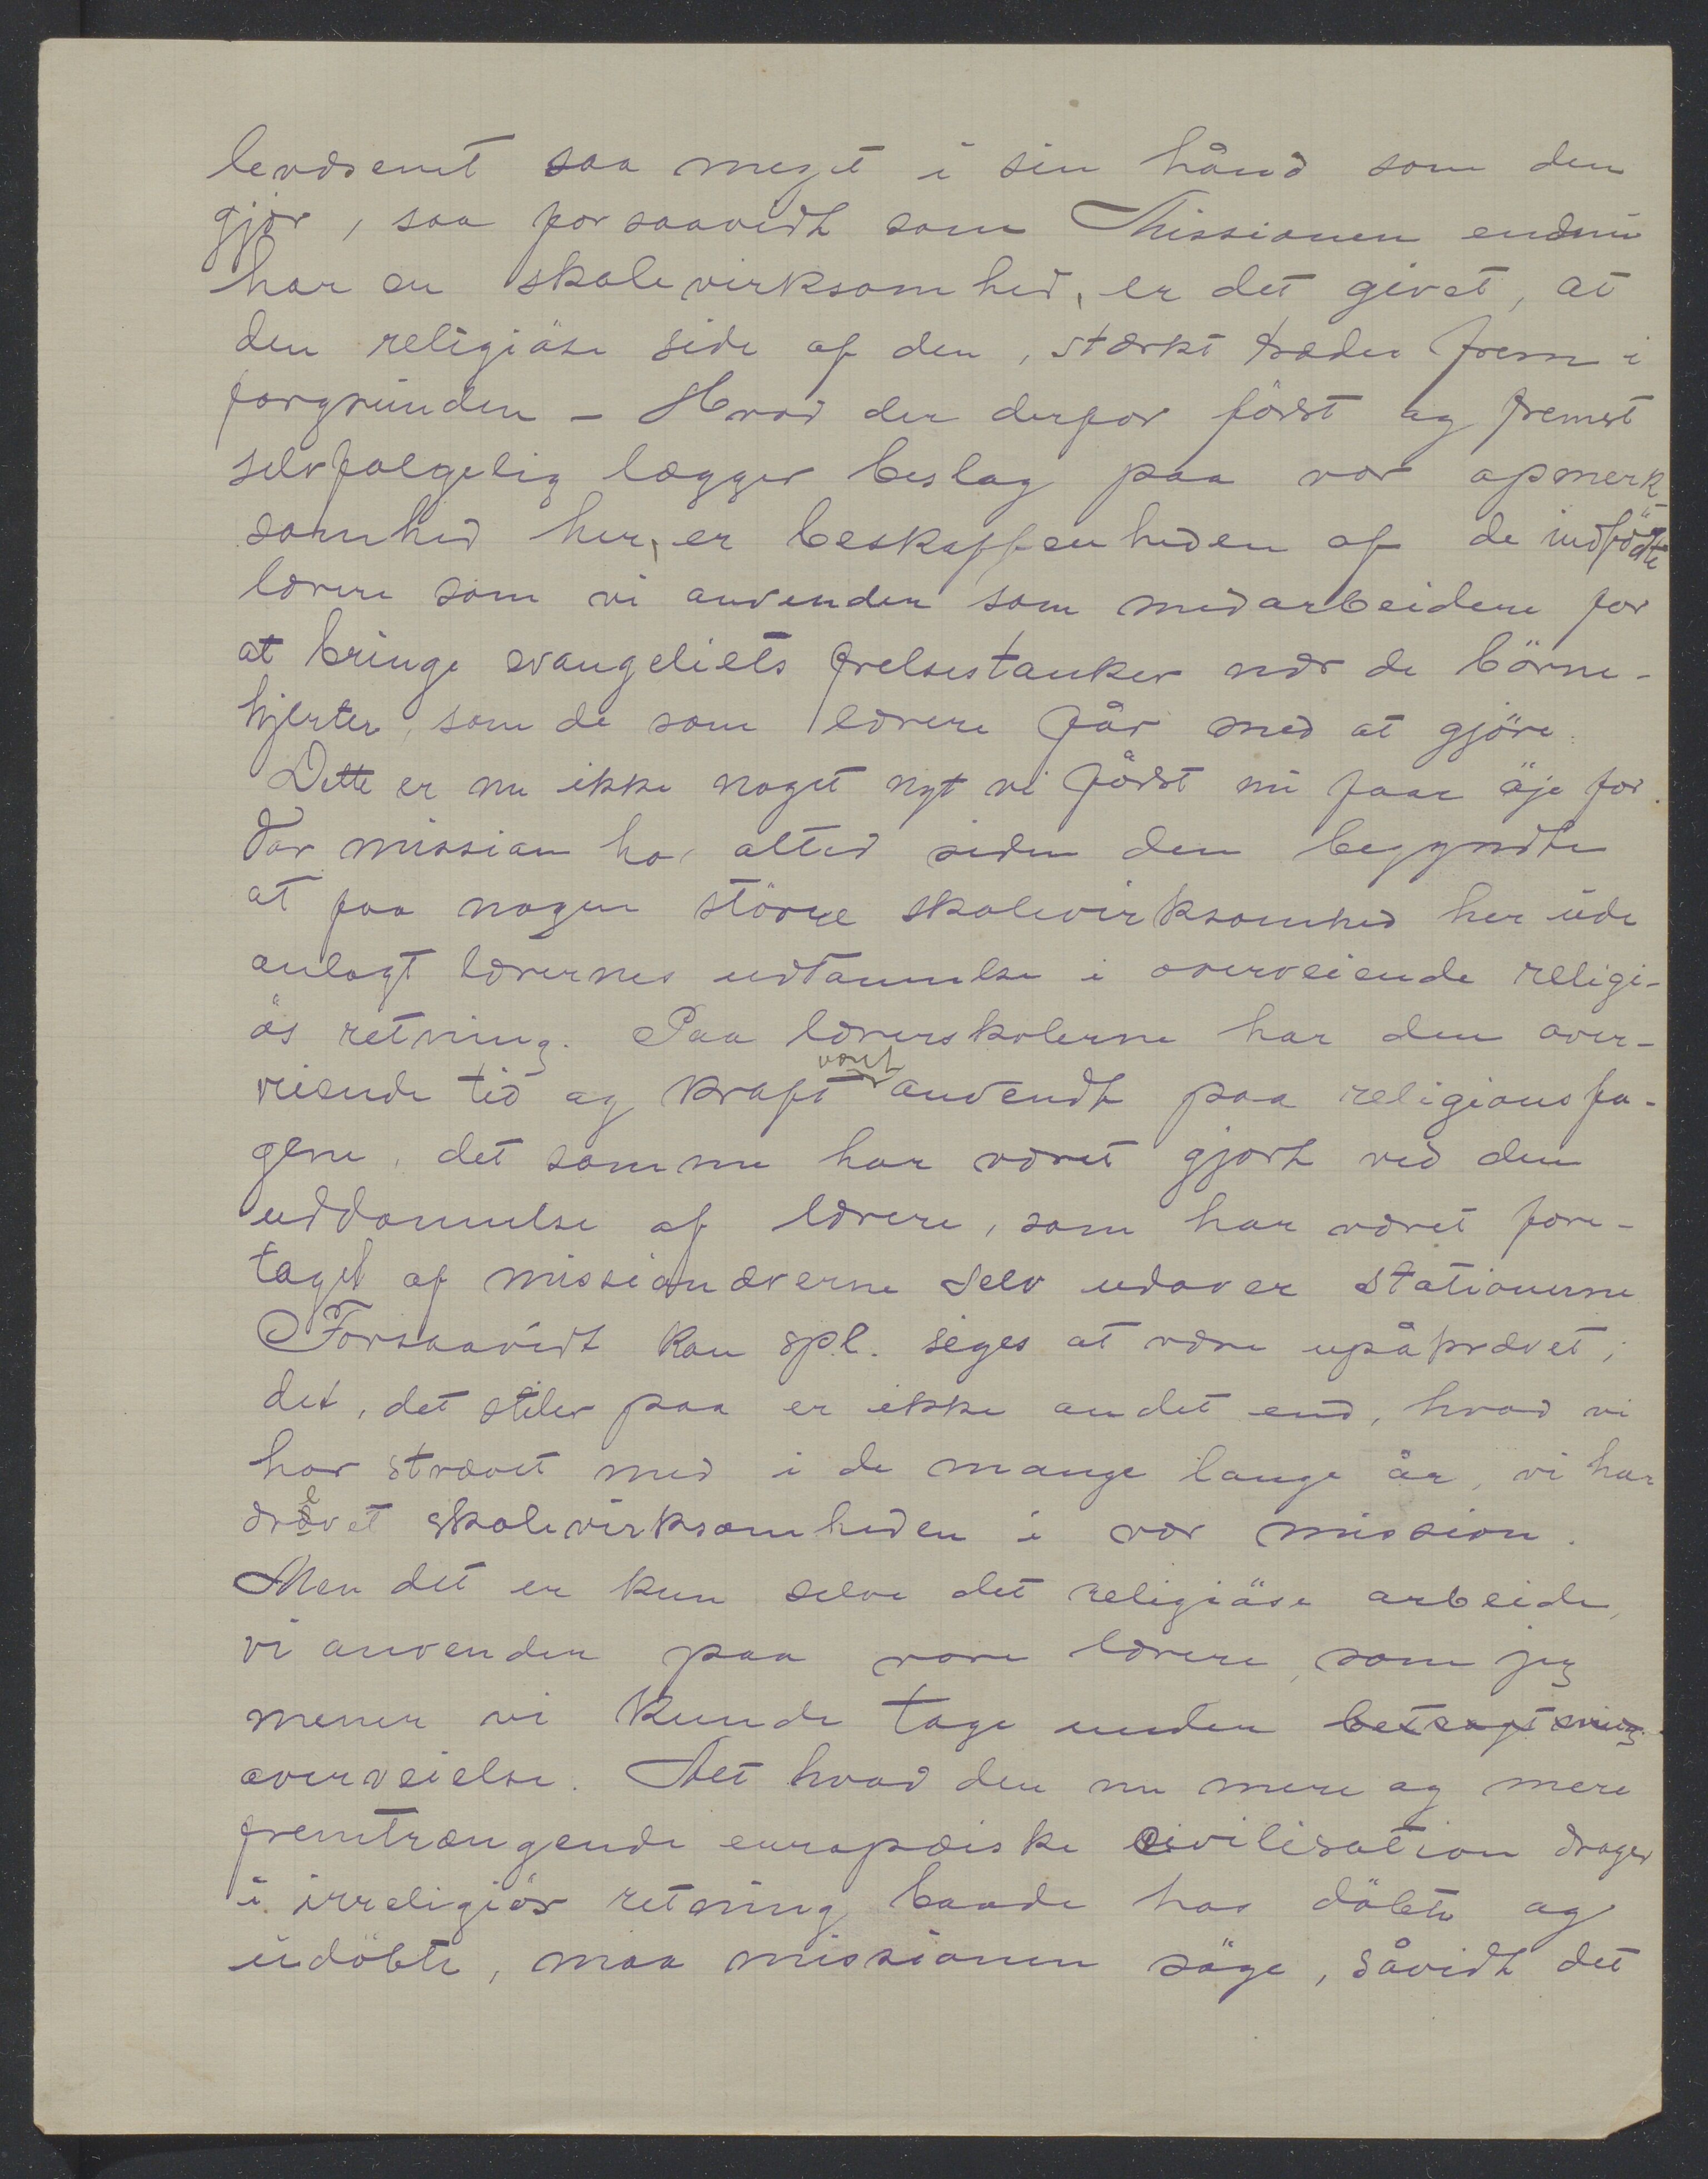 saa meget i sin hånd som den
gjör, saa forsaavidt som Missionen endnu
har en skolevirksomhed, er det givet, at
den religiöse side af den, stærkt træder frem i
forgrunden – Hvad der derfor först og fremst
selvfølgelig lægger beslag paa vor opmerk-
somhed her, er beskaffenheden af de indfödte
lærere som vi anvender som medarbeidere for
at bringe evangeliets frelsestanker nær de börne-
hjerter, som de som lærere får med at gjöre.
Dette er nu ikke noget nyt vi först nu faar öje for.
Vor mission har altid siden den begyndte
at faa nogen större skolevirksomhed her ude
anlagt lærernes uddannelse i overveiende religi-
ös retning. Paa lærerskolerne har den over-
veiende tid og kraft været anvendt paa religionsfa-
gene, det samme har været gjort ved den
uddannelse af lærere, som har været fore-
taget af missionærerne selv udover stationerne
Forsaavidt kan spl. siges at være upåkrævet;
det, det stiler paa er ikke andet end, hvad vi
har strævet med i de mange lange år, vi har
drevet skolevirksomheden i vor mission.
Men det er kun selve det religiöse arbeide,
vi anvender paa vore lærere, som jeg
mener vi kunde tage under betragtning
overveielse. Det hvad den nu mere og mere
fremtrængende europæiske civilisation drager
i irreligiös retning baade hos döbte og
udöbte, maa missionen söge, såvidt det